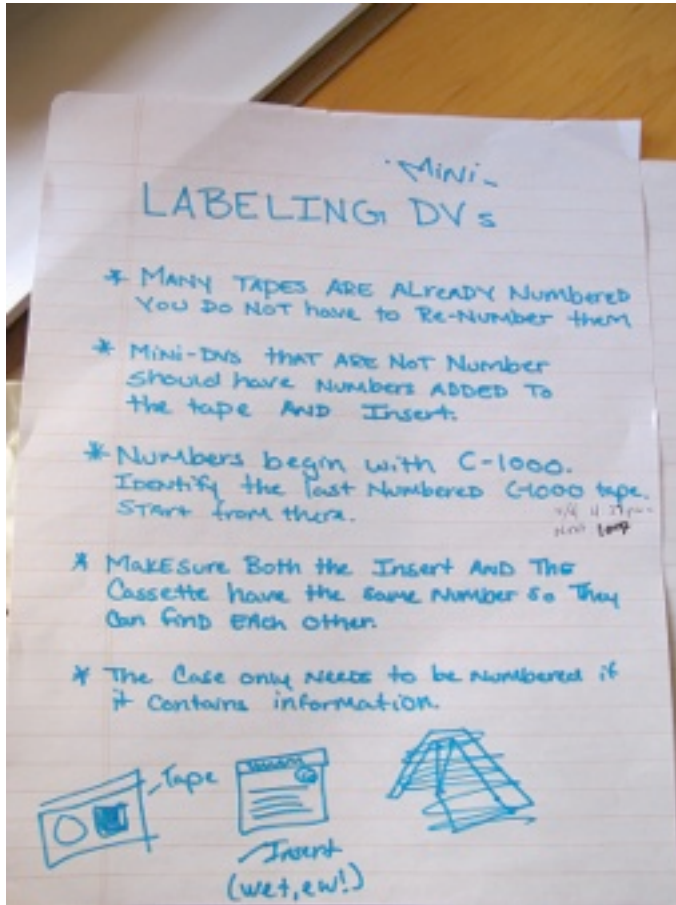 -MiNi-
LABELING DVs
* MANY TAPES ARE ALreADY Numbered
YOU DO NOT have to Re-Number them
* MiNi-DVs that ARE Not Number
Should have Numbers ADDED To
the tape AND Insert.
* Numbers begin with C-1000.
Identify the last Numbered C-1000 tape.
START from there.
* MAKE sure Both the Insert AND The
Cassette have the same Number so They
Can find EAch other.
* The Case only NEEDS to be Numbered if
it Contains information.
Tape
Insert
(wet, ew!)